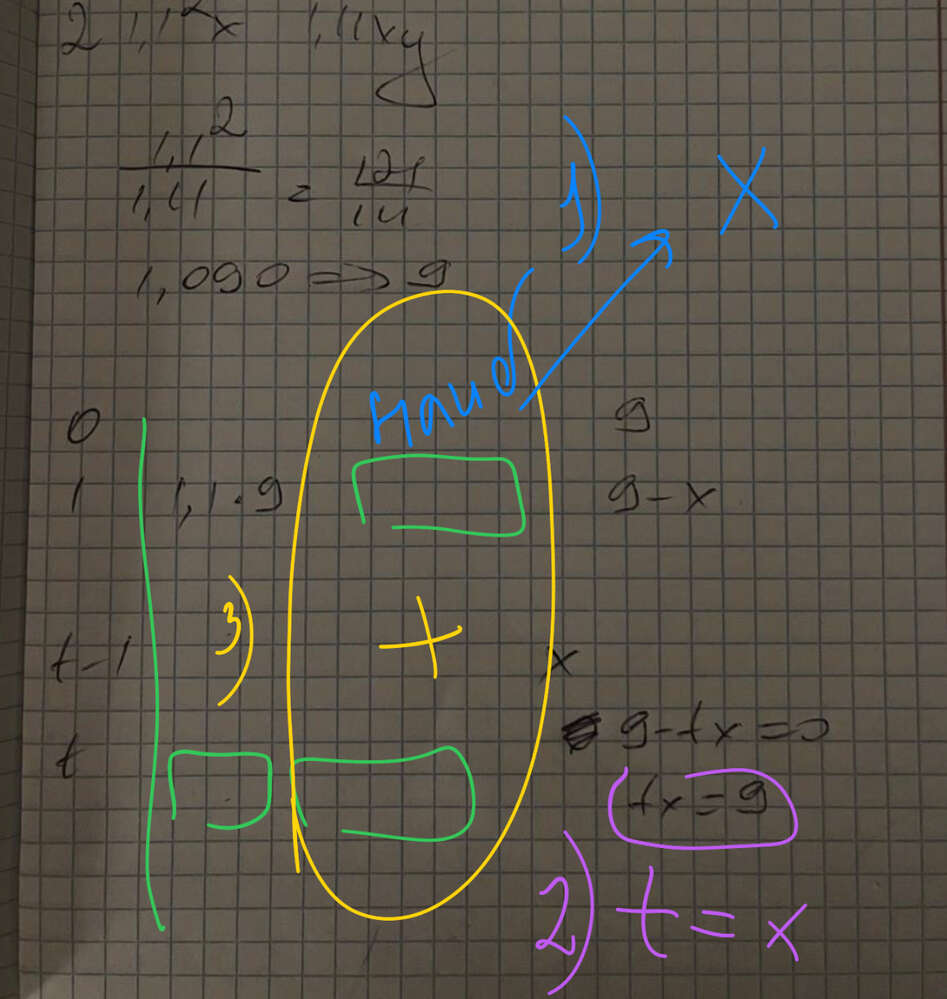 2 1,1²x 1,11xy
1,1²
1,11 = 121
1,090 => 9
1)
X
наиб
0 9
1 1,1·9 9-x
3) +
t-1 x
t 9-tx=0
tx=9
2) t=x